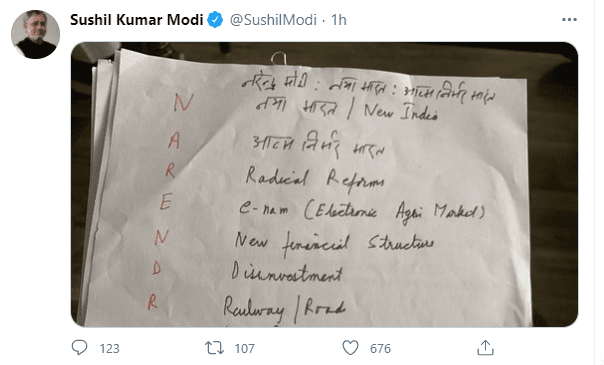 Sushil Kumar Modi @SushilModi · 1h
नरेन्द्र मोदी : नया भारत : आत्म निर्भर भारत
N नया भारत / New India
A आत्म निर्भर भारत
R Radical Reforms
E e-nam (Electronic Agri Market)
N New financial Structure
D Disinvestment
R Railway / Road
123 107 676